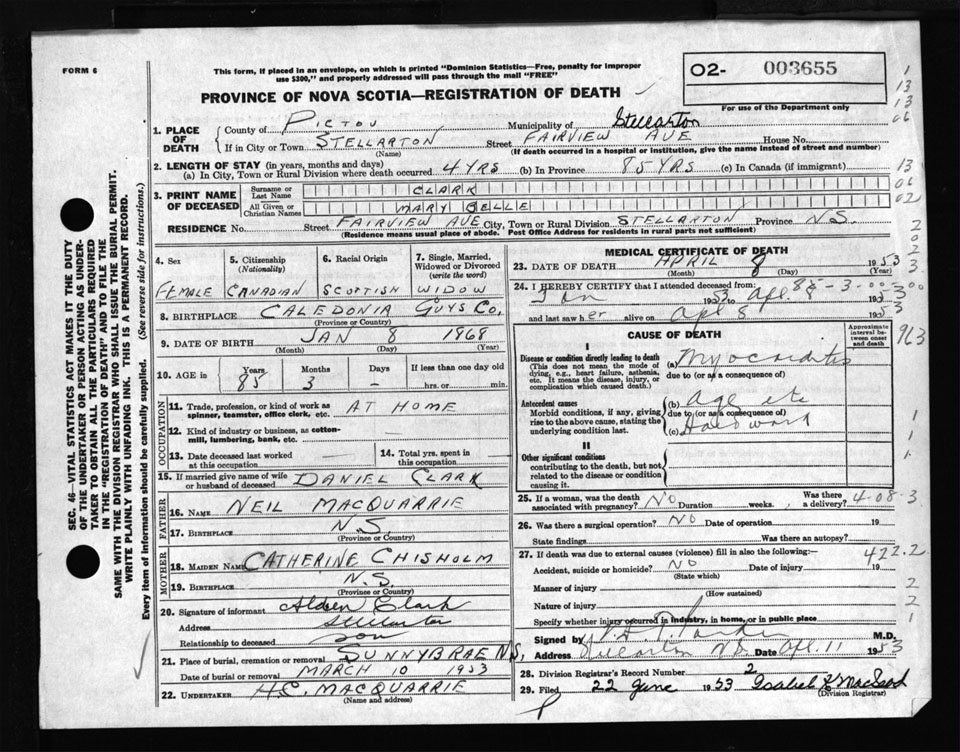 FORM 6
This form, if placed in an envelope, on which is printed "Dominion Statistics—Free, penalty for improper
use $300," and properly addressed will pass through the mail "FREE"
O2- 003655
For use of the Department only
PROVINCE OF NOVA SCOTIA—REGISTRATION OF DEATH
1. PLACE OF DEATH
County of PICTOU Municipality of Stellarton
If in City or Town STELLARTON Street FAIRVIEW AVE House No.
(Name) (If death occurred in a hospital or institution, give the name instead of street and number)
2. LENGTH OF STAY (in years, months and days)
(a) In City, Town or Rural Division where death occurred 4 YRS (b) In Province 85 YRS (c) In Canada (if immigrant)
3. PRINT NAME OF DECEASED
Surname or Last Name CLARK
All Given or Christian Names MARY BELLE
RESIDENCE No. Street FAIRVIEW AVE City, Town or Rural Division STELLARTON Province N.S.
(Residence means usual place of abode. Post Office Address for residents in rural parts not sufficient)
4. Sex FEMALE
5. Citizenship (Nationality) CANADIAN
6. Racial Origin SCOTTISH
7. Single, Married, Widowed or Divorced (write the word) WIDOW
8. BIRTHPLACE CALEDONIA GUYS CO.
(Province or Country)
9. DATE OF BIRTH JAN 8 1968
(Month) (Day) (Year)
10. AGE in Years 85 Months 3 Days - If less than one day old
hrs. or min.
OCCUPATION
11. Trade, profession, or kind of work as spinner, teamster, office clerk, etc. AT HOME
12. Kind of industry or business, as cotton-mill, lumbering, bank, etc.
13. Date deceased last worked at this occupation
14. Total yrs. spent in this occupation
15. If married give name of wife or husband of deceased DANIEL CLARK
FATHER
16. NAME NEIL MACQUARRIE
17. BIRTHPLACE N.S.
(Province or Country)
MOTHER
18. MAIDEN NAME CATHERINE CHISHOLM
19. BIRTHPLACE N.S.
(Province or Country)
20. Signature of informant Alden Clark
Address Stellarton
Relationship to deceased son
21. Place of burial, cremation or removal SUNNYBRAE N.S.
Date of burial or removal MARCH 10 1953
22. UNDERTAKER H.C. MACQUARRIE
(Name and address)
MEDICAL CERTIFICATE OF DEATH
23. DATE OF DEATH APRIL 8 1953
(Month) (Day) (Year)
24. I HEREBY CERTIFY that I attended deceased from:
Jan 1953 to Apl. 8 1953
and last saw her alive on Apl 8 1953
CAUSE OF DEATH
Approximate interval between onset and death
I
Disease or condition directly leading to death
(This does not mean the mode of dying, e.g., heart failure, asthenia, etc. It means the disease, injury, or complication which caused death.)
(a) Myocarditis
due to (or as a consequence of)
Antecedent causes
Morbid conditions, if any, giving rise to the above cause, stating the underlying condition last.
(b) age etc
due to (or as a consequence of)
(c) Hard work
II
Other significant conditions
contributing to the death, but not related to the disease or condition causing it.
25. If a woman, was the death associated with pregnancy? NO Duration weeks. Was there a delivery?
4-08-3
26. Was there a surgical operation? NO Date of operation 19
State findings Was there an autopsy?
27. If death was due to external causes (violence) fill in also the following:—
422.2
Accident, suicide or homicide? NO Date of injury 19
(State which)
Manner of injury
(How sustained)
Nature of injury
Specify whether injury occurred in industry, in home, or in public place
Signed by M.D.
Address Stellarton N.S. Date Apl. 11 1953
28. Division Registrar's Record Number 2
29. Filed 22 June 1953 Isabel F. MacLeod
(Division Registrar)
SEC. 46—VITAL STATISTICS ACT MAKES IT THE DUTY
OF THE UNDERTAKER OR PERSON ACTING AS UNDER-
TAKER TO OBTAIN ALL THE PARTICULARS REQUIRED
IN THE "REGISTRATION OF DEATH" AND TO FILE THE
SAME WITH THE DIVISION REGISTRAR WHO SHALL ISSUE THE BURIAL PERMIT.
WRITE PLAINLY WITH UNFADING INK. THIS IS A PERMANENT RECORD.
Every item of information should be carefully supplied. (See reverse side for instructions.)
1
13
13
06
13
06
02
2
0
2
3
00
963
1
1
1
2
2
1